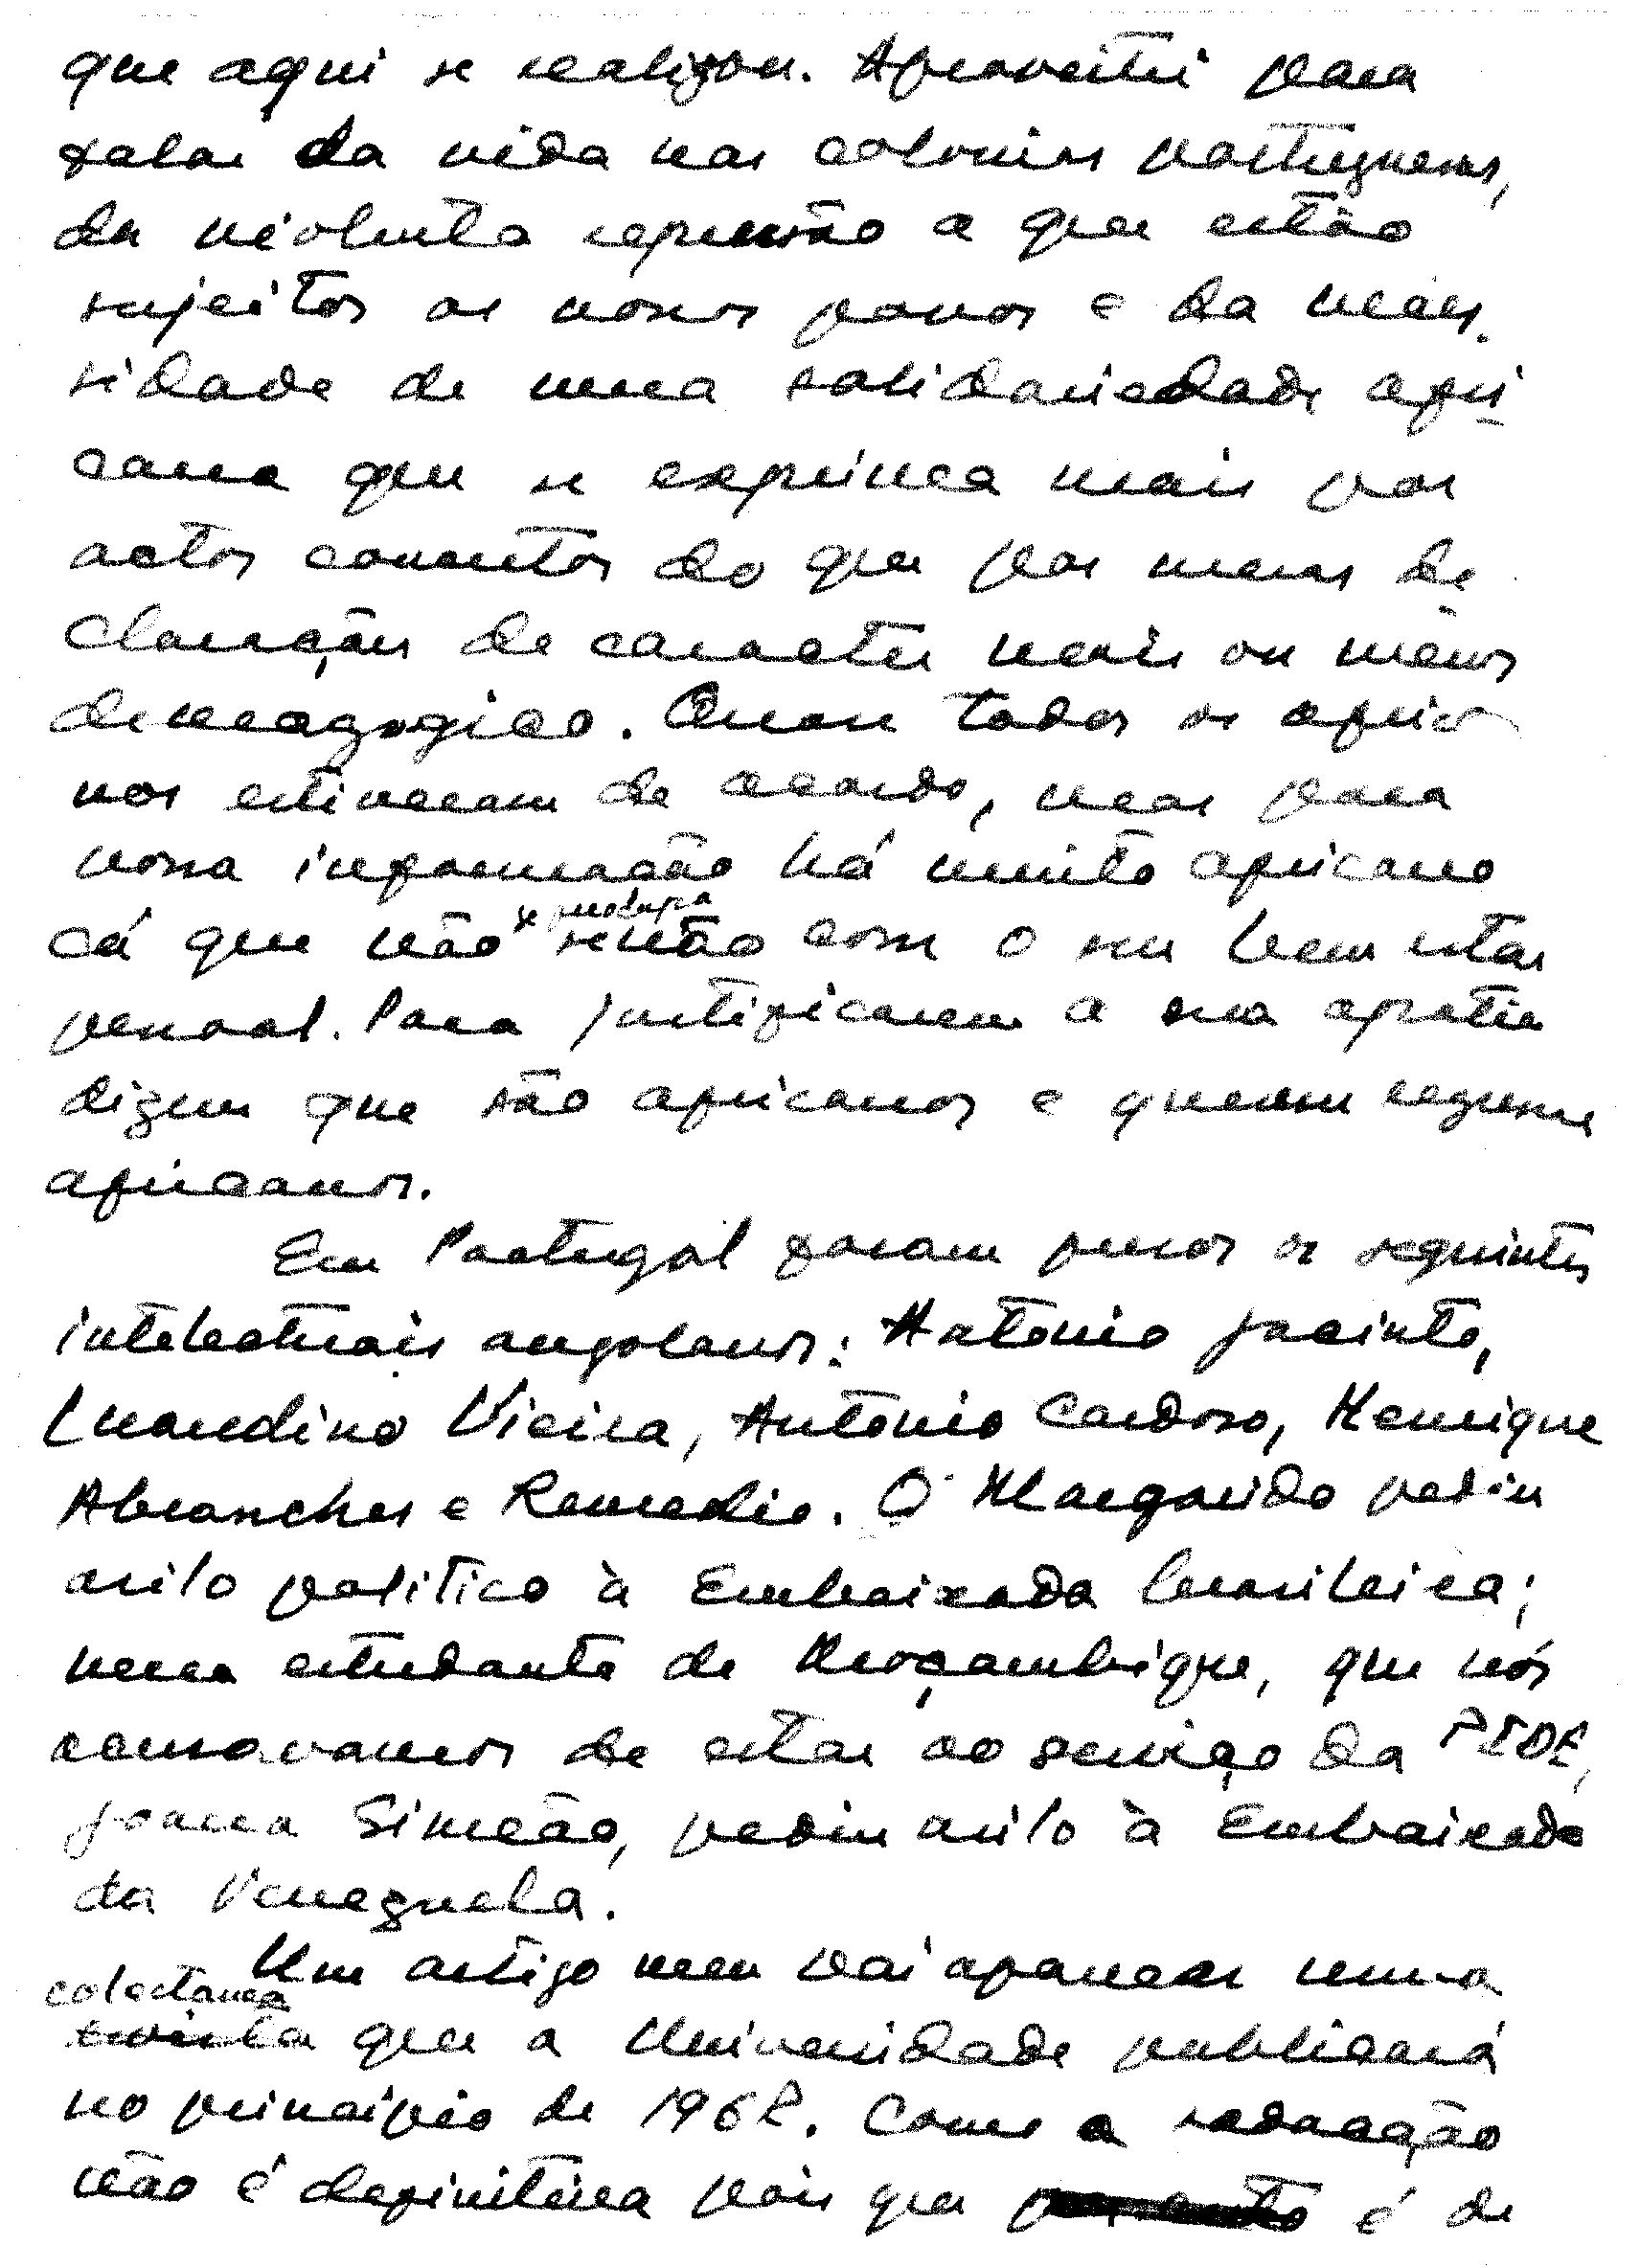 que aqui se realizou. Aproveitei para
falar da vida nas colonias portuguesas,
da violenta repressão a que estão
sujeitos os nossos povos e da neces-
sidade de uma solidariedade afri-
cana que se exprima mais por
actos concretos do que por meras de-
clarações de caracter mais ou menos
demagogico. Quase todos os africa-
nos estiveram de acordo, mas para
vossa informação há muito africano
cá que não se preocupa senão com o seu bem estar
pessoal. Para justificarem a sua apatia
dizem que são africanos e querem regressar
africanos.
Em Portugal foram presos os seguintes
intelectuais angolanos: António Jacinto,
Luandino Vieira, António Cardoso, Henrique
Abranches e Remedio. O Margarido pediu
asilo politico à Embaixada brasileira;
uma estudante de Moçambique, que nós
acusavamos de estar ao serviço da PIDE,
Joana Simeão, pediu asilo à Embaixada
da Venezuela.
Um artigo meu vai aparecer numa
colectanea que a Universidade publicará
no principio de 1962. Como a redacção
não é definitiva pois que é de